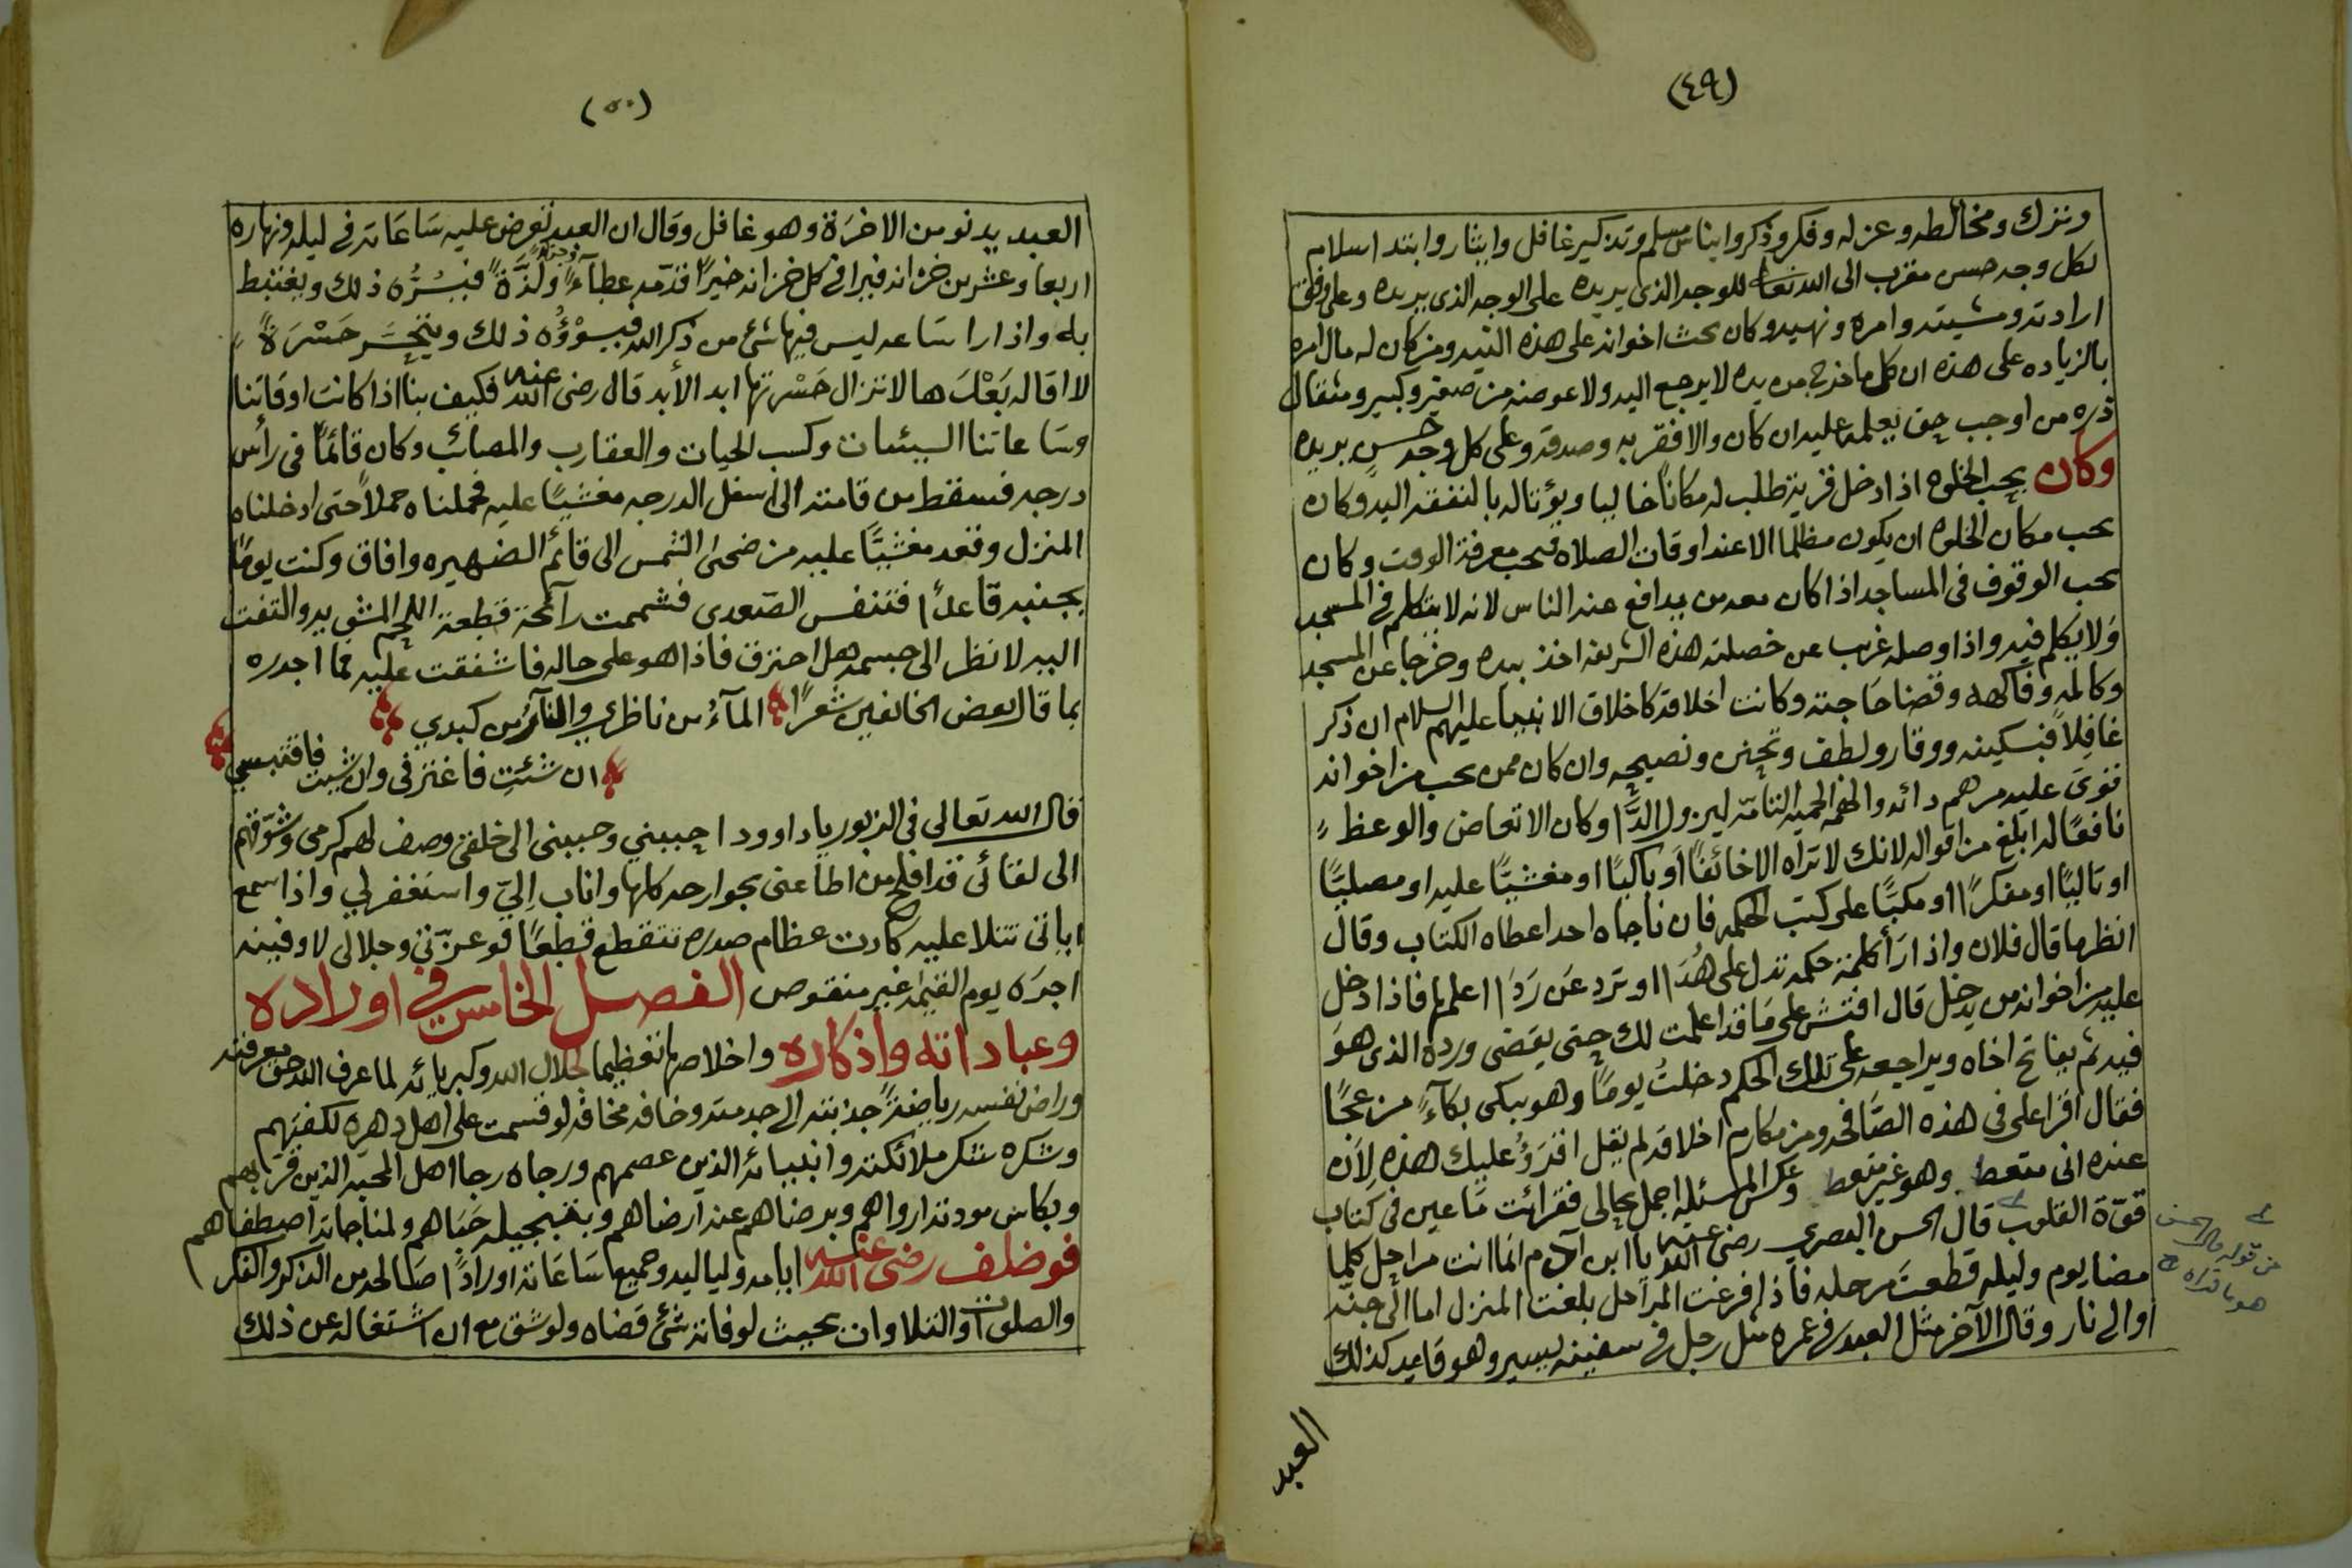 (٤٩)
وترك ومخالطه وعزله وفكر وذكر وايناس مسلم وتذكير غافل وايثار وابتد اسلام
لكل وجه حسن مقرب الى الله تعالى للوجه الذي يريده على الوجه الذي يريده وعلى وفق
ارادته ومشيته وامره ونهيه وكان يحث اخوانه على هذه النيه ومن كان له مال امره
بالزياده على هذه ان كل ما خرج من يده لا يرجع اليه ولا عوضه من صغير وكبير ومثقال
ذره من اوجب حق يعلمه عليه ان كان والافقربه وصدقه وعلى كل وجه حسن يريده
وكان يحب الخلوه اذا دخل قرية طلب له مكاناً خاليا ويؤتا له بالنفقه اليه وكان
يحب مكان الخلوه ان يكون مظلما الا عند اوقات الصلاه فيحب معرفة الوقت وكان
يحب الوقوف في المساجد اذا كان معه من يدافع عنه الناس لانه لا يتكلم في المسجد
ولا يكلم فيه واذا وصله غريب عن خصلته هذه الشريفه اخذ بيده وخرجا عن المسجد
وكالمه وفاكهه وقضا حاجته وكانت اخلاقه كاخلاق الانبيا عليهم السلام ان ذكر
غافلاً فبسكينه ووقار ولطف وتحنن ونصيحه وان كان ممن يحب من اخوانه
قوي عليه مرهم دائه والحمه الحميه التامّه ليزول الدَّا وكان الاتعاض والوعظ
نافعًا له ابلغ من اقواله لانك لا تراه الا خائفًا او باكيًا او مغشيًّا عليه او مصليًّا
او تاليًا او مفكرًا او مكبًّا على كتب الحكمه فان ناجاه احد اعطاه الكتاب وقال
انظر ما قال فلان واذا رأ كلمة حكمه تدل على هُدَا او ترد عَن رَدَا اعلم بها فاذا دخل
عليه من اخوانه من يدخل قال افتش على مَا قد اعلمت لك حتى يقضى ورده الذي هو
فيه ثم يفاتح اخاه ويراجعه على تلك الحكم دخلتُ يومًا وهو يبكى بكآءً مزعجًا
فقال اقرا على في هذه الصّافحه ومن مكارم اخلاقه لم يقل اقرؤُ عليك هذه لأن
عنده انى متعط وهو غير متعط وعكس المسئله اجمل بحالى فقرائت مَا عين في كتاب
قوّة القلوب قال الحسن البصري رضي الله عنه يا ابن آدم انما انت مراحل كلما
مضا يوم وليله قطعتَ مرحله فاذا فرغت المراحل بلغت المنزل اما الى جنّه
او الى نار وقال الآخر مثل العبد في عمره مثل رجل في سفينه يسير وهو قاعد كذلك
من قوله قال الحسن
هو ما قراه
العبد
(٥٠)
العبد يدنو من الاخرَة وهو غافل وقال ان العبد تعرض عليه سَاعَاته في ليله ونهاره
اربعا وعشرين خزانه فيرا في كل خزانه خيرًا قدّمه عطآءً ولَذَّةً فيَسُرُّه ذلك ويغتبط
به واذا را سَاعه ليس فيها شئ من ذكر الله فيسوْؤُه ذلك ويتحسَّر حَسْرَةً
لا اقاله بَعْدَها لا تزال حَسْرتها ابد الأبد قال رضى الله عنه فكيف بنا اذا كانت اوقاتنا
وسَاعاتنا السيئات وكسب الحيات والعقارب والمصائب وكان قائمًا في رأس
درجه فسقط من قامته الى اسفل الدرجه مغشيًا عليه فحملناه حملاً حتى ادخلناه
المنزل وقعد مغشيًّا عليه من ضحى الشمس الى قائم الضهيره وافاق وكنت يومًا
بجنبه قاعدًا فتنفس الصّعدى فشممت رآئحة قطعة اللحم المشويه والتفت
اليه لانظر الى جسمه هل احترق فاذا هو على حاله فاشفقت عليه مما اجده
بما قال بعض الخائفين شعرًا المآءُ من ناظري والنارُ من كبدي
ان شئتِ فاغترفي وان شيت فاقتبسي
قال الله تعالى في الزبور ياداوود احببني وحببني الى خلقى وصف لهم كرمى وشوّقهم
الى لقائى قد افلح من اطاعنى بجوارحه كلها واناب اِليّ واستغفر لي واذا سمع
اياتى تتلا عليه كادت عظام صدره تتقطع قطعًا فوعزّتى وجلالى لاوفينه
اجرَه يوم القيمه غير منقوص الفصل الخامس في اوراده
وعباداته واذكاره واخلاصها تعظيما لجلال الله وكبريائه لما عرف الله حق معرفته
وراض نفسه رياضةً جذبته الى جد مته وخافه مخافه لو قسمت على اهل دهره لكفتهم
وشكره شكر ملائكته وانبيائه الذين عصمهم ورجاه رجا اهل المحبه الذين قربهم
وبكاس مودته ارواهم وبرضاهم عنه ارضاهم وبتبجيله حَبَاهم ولمناجاته اصطفاهم
فوضف رضى الله عنه ايامه ولياليه وجميع سَاعَاته اورادًا صَالحه من الذكر والفكر
والصلوات والتلاوات بحيث لو فاته شئ قضاه ولو شق مع ان اشتغاله عن ذلك